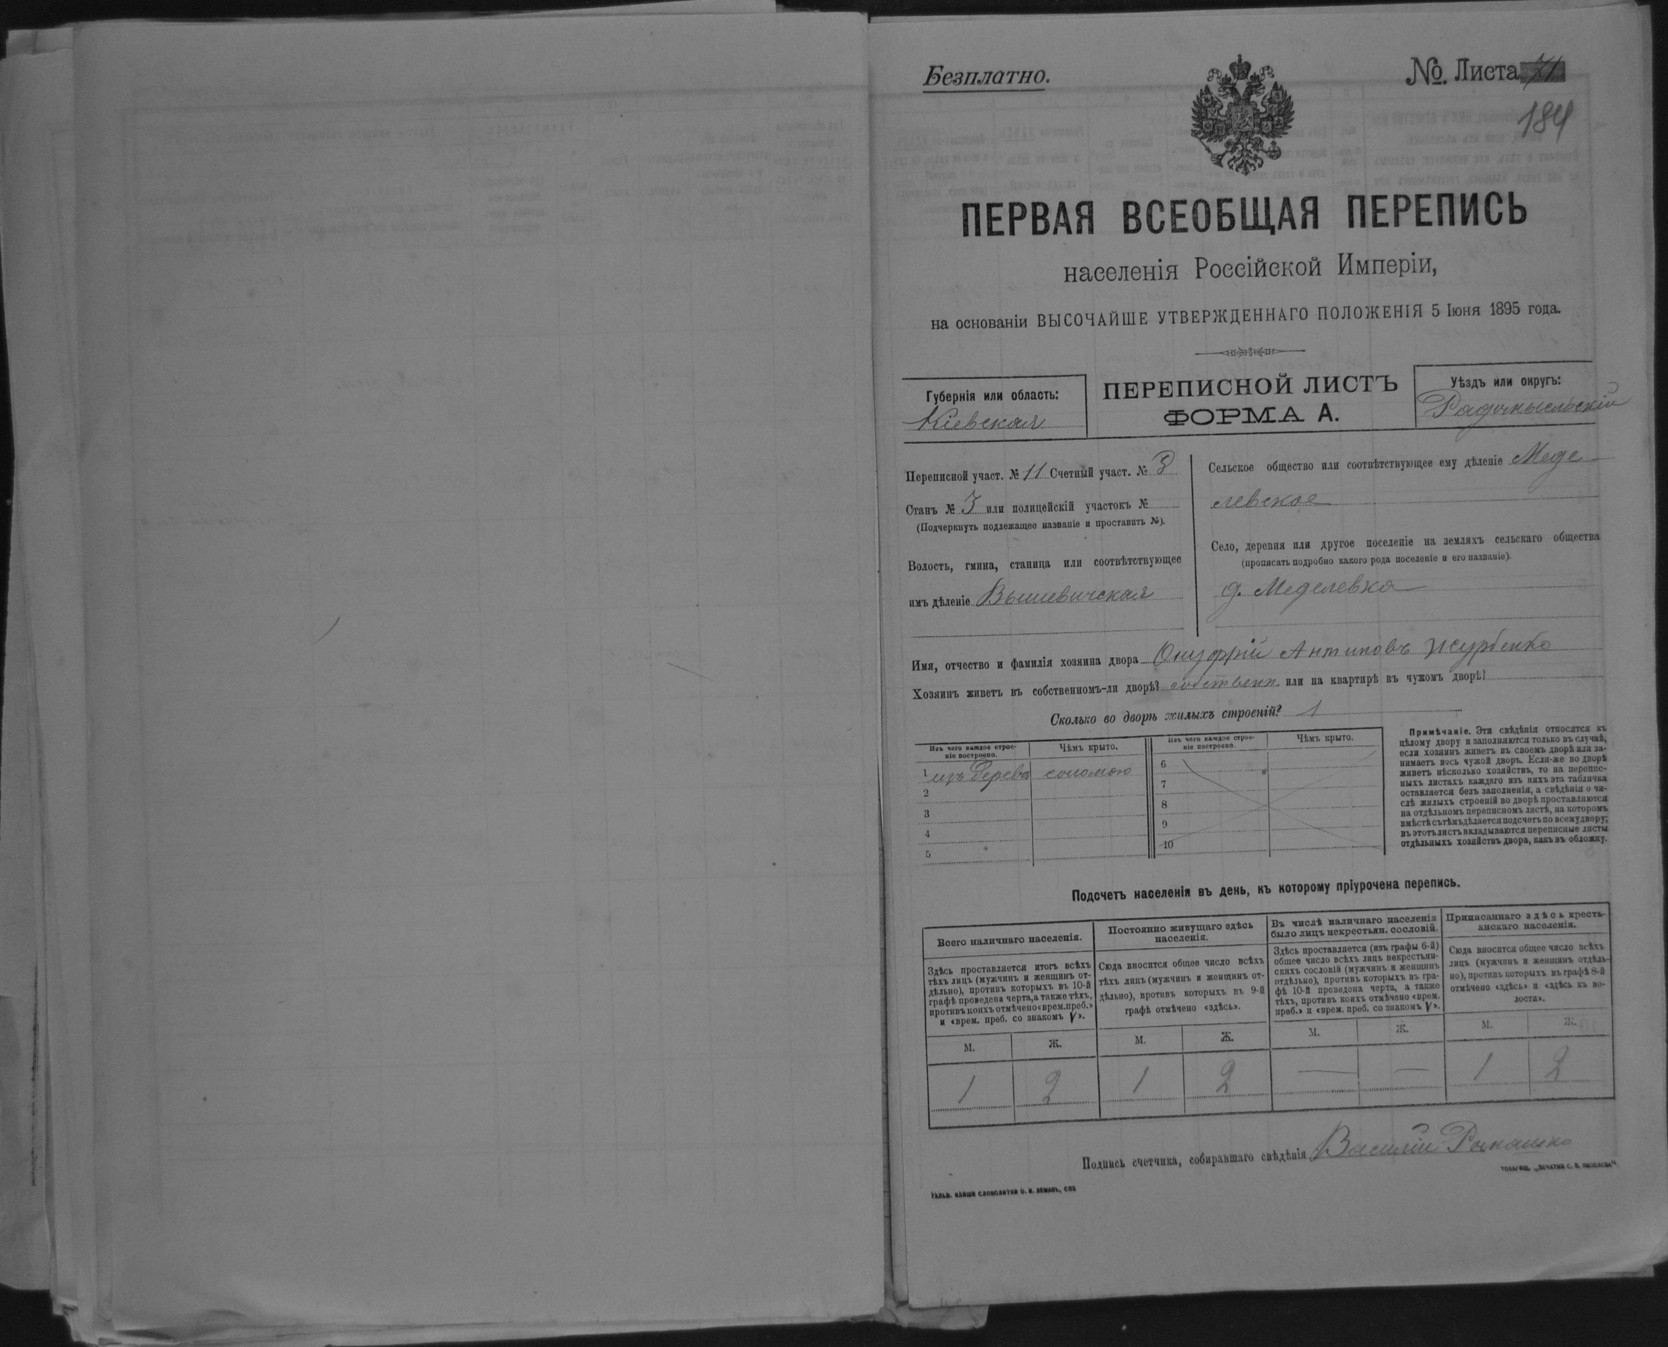 Безплатно.
№. Листа
184
ПЕРВАЯ ВСЕОБЩАЯ ПЕРЕПИСЬ
населенія Россійской Имперіи,
на основаніи ВЫСОЧАЙШЕ УТВЕРЖДЕННАГО ПОЛОЖЕНІЯ 5 Іюня 1895 года.
Губернія или область:
Кіевская
ПЕРЕПИСНОЙ ЛИСТЪ
ФОРМА А.
Уѣздъ или округъ:
Радомысльскій
Переписной участ. № 11 Счетный участ. № 3
Станъ № 3 или полицейскій участокъ №
(Подчеркнуть подлежащее названіе и проставить №).
Волость, гмина, станица или соотвѣтствующее
имъ дѣленіе Вышевичская
Сельское общество или соотвѣтствующее ему дѣленіе Меде
левское
Село, деревня или другое поселеніе на земляхъ сельскаго общества
(прописать подробно какого рода поселеніе и его названіе).
д. Меделевка
Имя, отчество и фамилія хозяина двора Онуфрій Антиповъ Журбенко
Хозяинъ живетъ въ собственномъ-ли дворѣ? собственн. или на квартирѣ въ чужомъ дворѣ?
Сколько во дворѣ жилыхъ строеній? 1
Изъ чего каждое строе-
ніе построено.
Чѣмъ крыто.
1 изъ дерева соломою
2
3
4
5
Изъ чего каждое строе-
ніе построено.
Чѣмъ крыто.
6
7
8
9
10
Примѣчаніе. Эти свѣдѣнія относятся къ
цѣлому двору и заполняются только въ случаѣ,
если хозяинъ живетъ въ своемъ дворѣ или за-
нимаетъ весь чужой дворъ. Если-же во дворѣ
живетъ нѣсколько хозяйствъ, то на перепис-
ныхъ листахъ каждаго изъ нихъ эта табличка
оставляется безъ заполненія, а свѣдѣнія о чи-
слѣ жилыхъ строеній во дворѣ проставляются
на отдѣльномъ переписномъ листѣ, на которомъ
вмѣстѣ съ тѣмъ дѣлается подсчетъ по всему двору;
въ этотъ листъ вкладываются переписные листы
отдѣльныхъ хозяйствъ двора, какъ въ обложку.
Подсчетъ населенія въ день, къ которому пріурочена перепись.
Всего наличнаго населенія.
Здѣсь проставляется итогъ всѣхъ
тѣхъ лицъ (мужчинъ и женщинъ от-
дѣльно), противъ которыхъ въ 10-й
графѣ проведена черта, а также тѣхъ,
противъ коихъ отмѣчено «врем. преб.»
и «врем. преб. со знакомъ V».
М. Ж.
1 2
Постоянно живущаго здѣсь
населенія.
Сюда вносится общее число всѣхъ
тѣхъ лицъ (мужчинъ и женщинъ от-
дѣльно), противъ которыхъ въ 9-й
графѣ отмѣчено «здѣсь».
М. Ж.
1 2
Въ числѣ наличнаго населенія
было лицъ некрестьян. сословій.
Здѣсь проставляется (изъ графы 6-й)
общее число всѣхъ лицъ некрестьян-
скихъ сословій (мужчинъ и женщинъ
отдѣльно), противъ которыхъ въ гра-
фѣ 10-й проведена черта, а также
тѣхъ, противъ коихъ отмѣчено «врем.
преб.» и «врем. преб. со знакомъ V».
М. Ж.
— —
Приписаннаго здѣсь кресть-
янскаго населенія.
Сюда вносится общее число всѣхъ
лицъ (мужчинъ и женщинъ отдѣль-
но), противъ которыхъ въ графѣ 8-й
отмѣчено «здѣсь» и «здѣсь къ во-
лости».
М. Ж.
1 2
Подпись счетчика, собиравшаго свѣдѣнія Василій